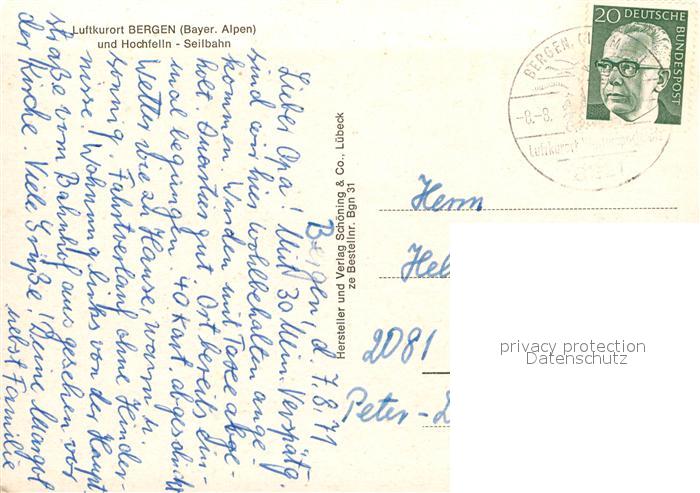 Luftkurort BERGEN (Bayer. Alpen)
und Hochfelln - Seilbahn
Bergen, d. 7.8.71
Lieber Opa! Mit 30 Min. Verspätg.
sind wir hier wohlbehalten ange-
kommen. Wurden mit Taxe abge-
holt. Quartier gut. Ort bereits ein-
mal begangen. 40 Kart. abgeschickt
Wetter wie zu Hause, warm u.
sonnig. Fahrtverlauf ohne Hinder-
nisse. Wohnung links von der Haupt-
straße vom Bahnhof aus gesehen vor
der Kirche. Viele Grüße! Deine Margot
nebst Familie
Hersteller und Verlag Schöning & Co., Lübeck
ze Bestellnr. Bgn 31
BERGEN,
-8.-8.
Luftkurort
20 DEUTSCHE
BUNDESPOST
Herrn
Hel
2081
Peter-
privacy protection
Datenschutz